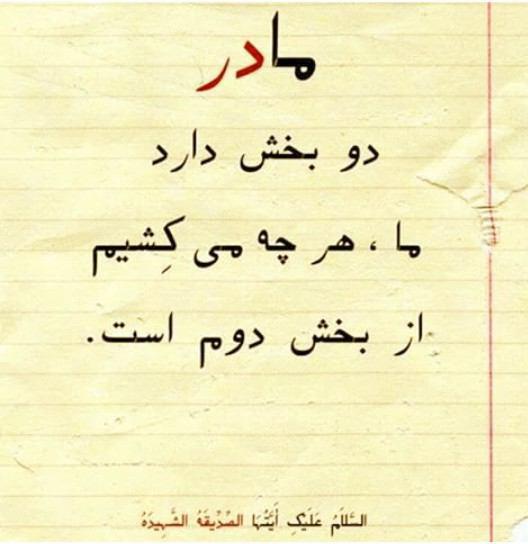 مادر
دو بخش دارد
ما ، هر چه می کِشیم
از بخش دوم است.
السَّلامُ عَلَیْکِ أَیَّتُهَا الصِّدِّیقَهُ الشَّهِیدَهُ